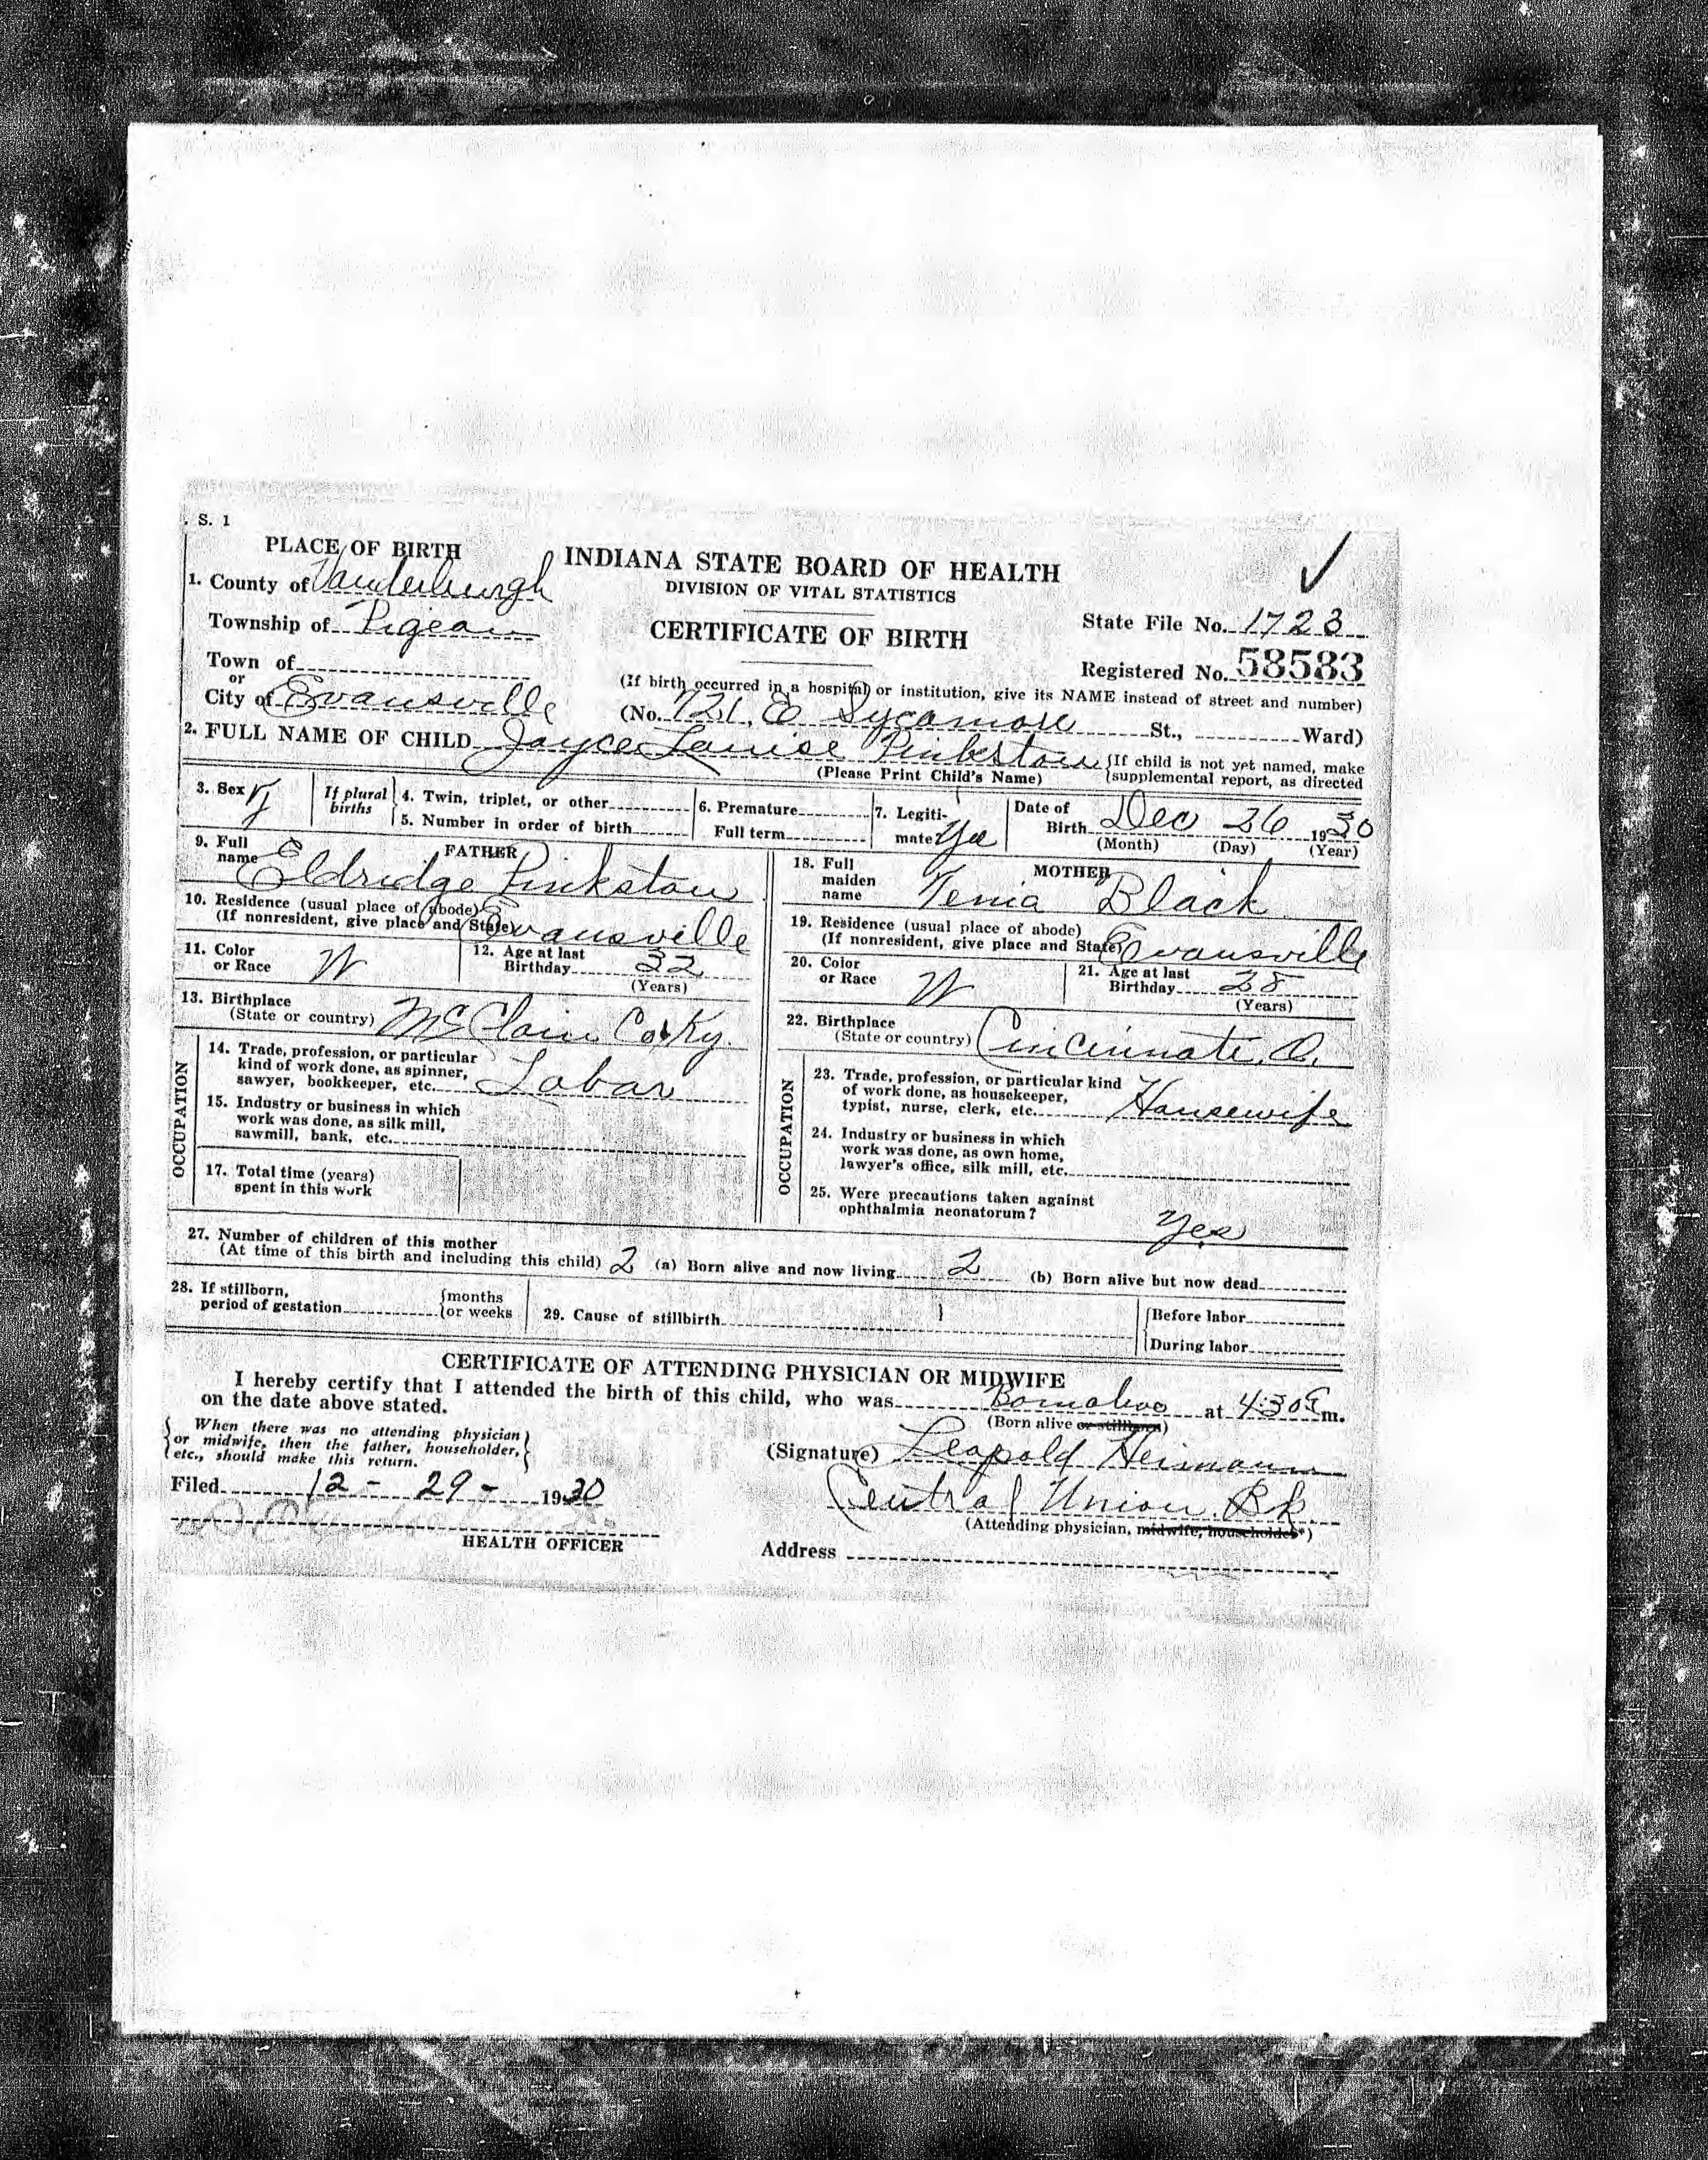 . S. 1
PLACE OF BIRTH
INDIANA STATE BOARD OF HEALTH
DIVISION OF VITAL STATISTICS
CERTIFICATE OF BIRTH
1. County of Vanderburgh
Township of Pigeon
Town of
or
City of Evansville
State File No. 1723
Registered No. 58583
(If birth occurred in a hospital or institution, give its NAME instead of street and number)
(No. 721. E Sycamore St., Ward)
2. FULL NAME OF CHILD Joyce Louise Pinkston {If child is not yet named, make
(Please Print Child's Name) (supplemental report, as directed
3. Sex F
If plural births
4. Twin, triplet, or other
5. Number in order of birth
6. Premature
Full term
7. Legiti-
mate Yes
Date of
Birth Dec 26 1930
(Month) (Day) (Year)
FATHER
9. Full
name Eldridge Pinkston
10. Residence (usual place of abode)
(If nonresident, give place and State) Evansville
11. Color
or Race W
12. Age at last
Birthday 32
(Years)
13. Birthplace
(State or country) McClain Co. Ky.
OCCUPATION
14. Trade, profession, or particular
kind of work done, as spinner,
sawyer, bookkeeper, etc. Labor
15. Industry or business in which
work was done, as silk mill,
sawmill, bank, etc.
17. Total time (years)
spent in this work
MOTHER
18. Full
maiden
name Tenia Black
19. Residence (usual place of abode)
(If nonresident, give place and State) Evansville
20. Color
or Race W
21. Age at last
Birthday 28
(Years)
22. Birthplace
(State or country) Cincinnati, O.
OCCUPATION
23. Trade, profession, or particular kind
of work done, as housekeeper,
typist, nurse, clerk, etc. Housewife
24. Industry or business in which
work was done, as own home,
lawyer's office, silk mill, etc.
25. Were precautions taken against
ophthalmia neonatorum? Yes
27. Number of children of this mother
(At time of this birth and including this child) 2 (a) Born alive and now living 2 (b) Born alive but now dead
28. If stillborn,
period of gestation {months
{or weeks
29. Cause of stillbirth
{Before labor
{During labor
CERTIFICATE OF ATTENDING PHYSICIAN OR MIDWIFE
I hereby certify that I attended the birth of this child, who was Born alive at 4:30 m.
on the date above stated.
(Born alive or stillborn)
{ When there was no attending physician }
{ or midwife, then the father, householder, }
{ etc., should make this return. }
(Signature) Leopold Heimann
Central Union Bk.
(Attending physician, midwife, householder*)
Filed 12 - 29 - 1930
HEALTH OFFICER
Address